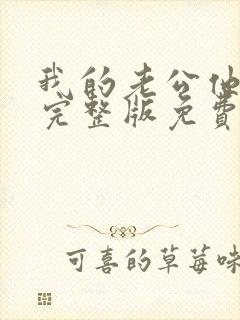 我的老公他
完整版免费
可喜的草莓味